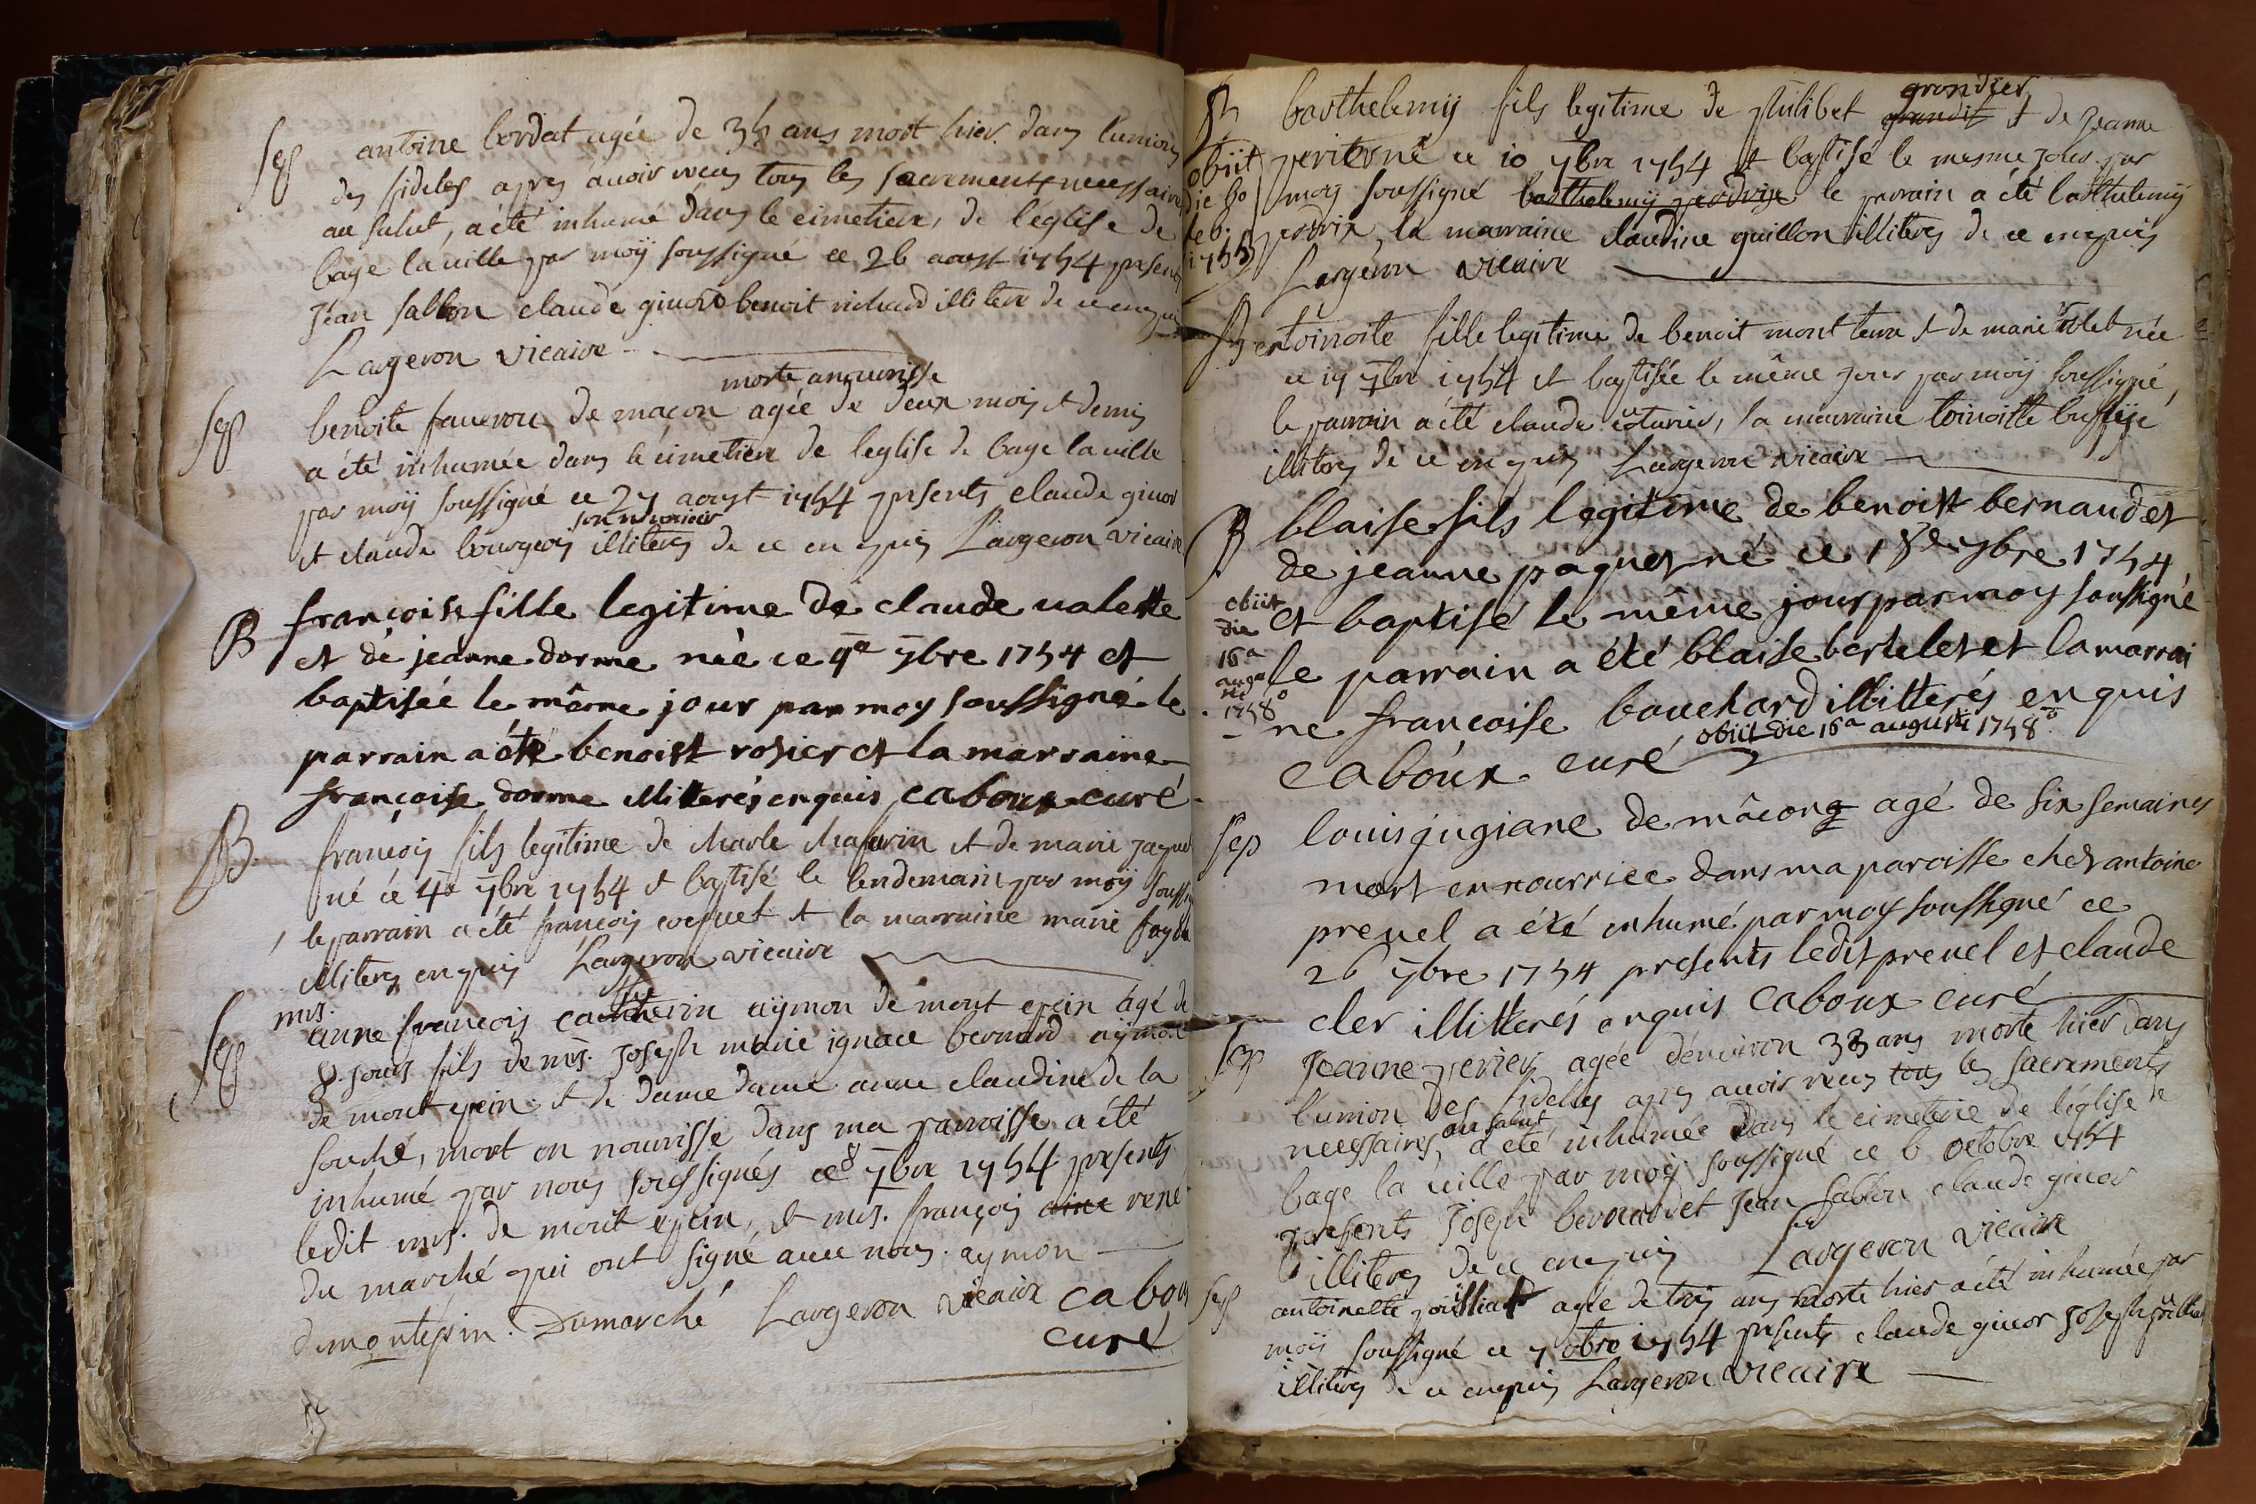 sep
antoine bordat agée de 35 ans mort hier dans lunion
des fideles apres avoir reçu tous les sacrements necessaires
au salut, a été inhumé dans le cimetiere, de l'eglise de
bage la ville par moÿ soussigné ce 26 aoust 1754 presents
Jean sablon claude givord benoit richard illiteres de ce enquis
Largeron vicaire
morte en nourisse
sep
benoite faverou de macon agée de deux mois et demis
a été inhumée dans le cimetiere de leglise de bage la ville
par moÿ soussigné ce 27 aoust 1754 presents claude givor
son nouricier
et claude bourgeois illiteres de ce enquis Largeron vicaire
B
françoise fille legitime de claude valette
et de jeanne dorme née ce 4e 7bre 1754 et
baptisée le même jour par moy soussigné le
parrain a été benoist rosier et la marraine
françoise dorme illitterés enquis caboux curé
B
françois fils legitime de Marle et de marie
né ce 4e 7bre 1754 et baptisé le lendemain par moÿ
le parrain a été françois coquet et la marraine marie
illiteres enquis Largeron vicaire
sep
mrs.
anne françois aÿmon de mont epin agé de
8 jours fils de mrs. Joseph marie ignace bernard aÿmon
de mont epin et de dame dame anne claudine de la
souche, mort en nourisse dans ma parroisse a été
inhumé par nous soussignés ce 8 7bre 1754 presents
ledit mrs. de mont epin, et mrs. françois aine rené
du marché qui ont signé avec nous. aÿmon
demontépin. Dumarché Largeron vicaire caboux
curé
B
grandier
barthelemÿ fils legitime de philibet grandit et de Jeanne
perier né ce 10 7bre 1754 et baptisé le mesme jour par
moÿ soussigné barthelemÿ perdrix le parrain a été barthelemÿ
perdrix, la marraine claudine guillon illiteres de ce enquis
Largeron vicaire
obiit
die
1755
B
toinoite fille legitime de benoit mont terra et de marie née
ce 17 7bre 1754 et baptisée le même jour par moÿ soussigné,
le parrain a été claude couturier, sa marraine toinoitte
illiteres de ce enquis Largeron vicaire
B
blaise fils legitime de benoist bernaud et
de jeanne paquet né ce 18e 7bre 1754
et baptisé le même jour par moy soussigné
le parrain a été blaise bertelet et la marrai
ne francoise bouchard illitterés enquis
caboux curé obiit die 16a augusti 1758o
obiit
die
16a
augu
sti
1758o
sep
louis jugiane de mâcon agé de six semaines
mort en nourrice dans ma paroisse chez antoine
prevel a été inhumé par moy soussigné ce
26 7bre 1754 presents ledit prevel et claude
cler illitterés enquis caboux curé
sep
Jeanne perier agée d'environ 38 ans morte hier dans
l'union des fideles apres avoir reçu tous les sacrements
au salut
necessaires, a été inhumée dans le cimeterie de l'église de
bage la ville par moÿ soussigné ce 6 octobre 1754
presents Joseph bernardet Jean sablon claude givor
illiteres de ce enquis Largeron vicaire
sep
antoinette agée de trois ans morte hier a été inhumée par
moÿ soussigné ce 7 8bre 1754 presents claude givor Joseph
illiteres de ce enquis Largeron vicaire